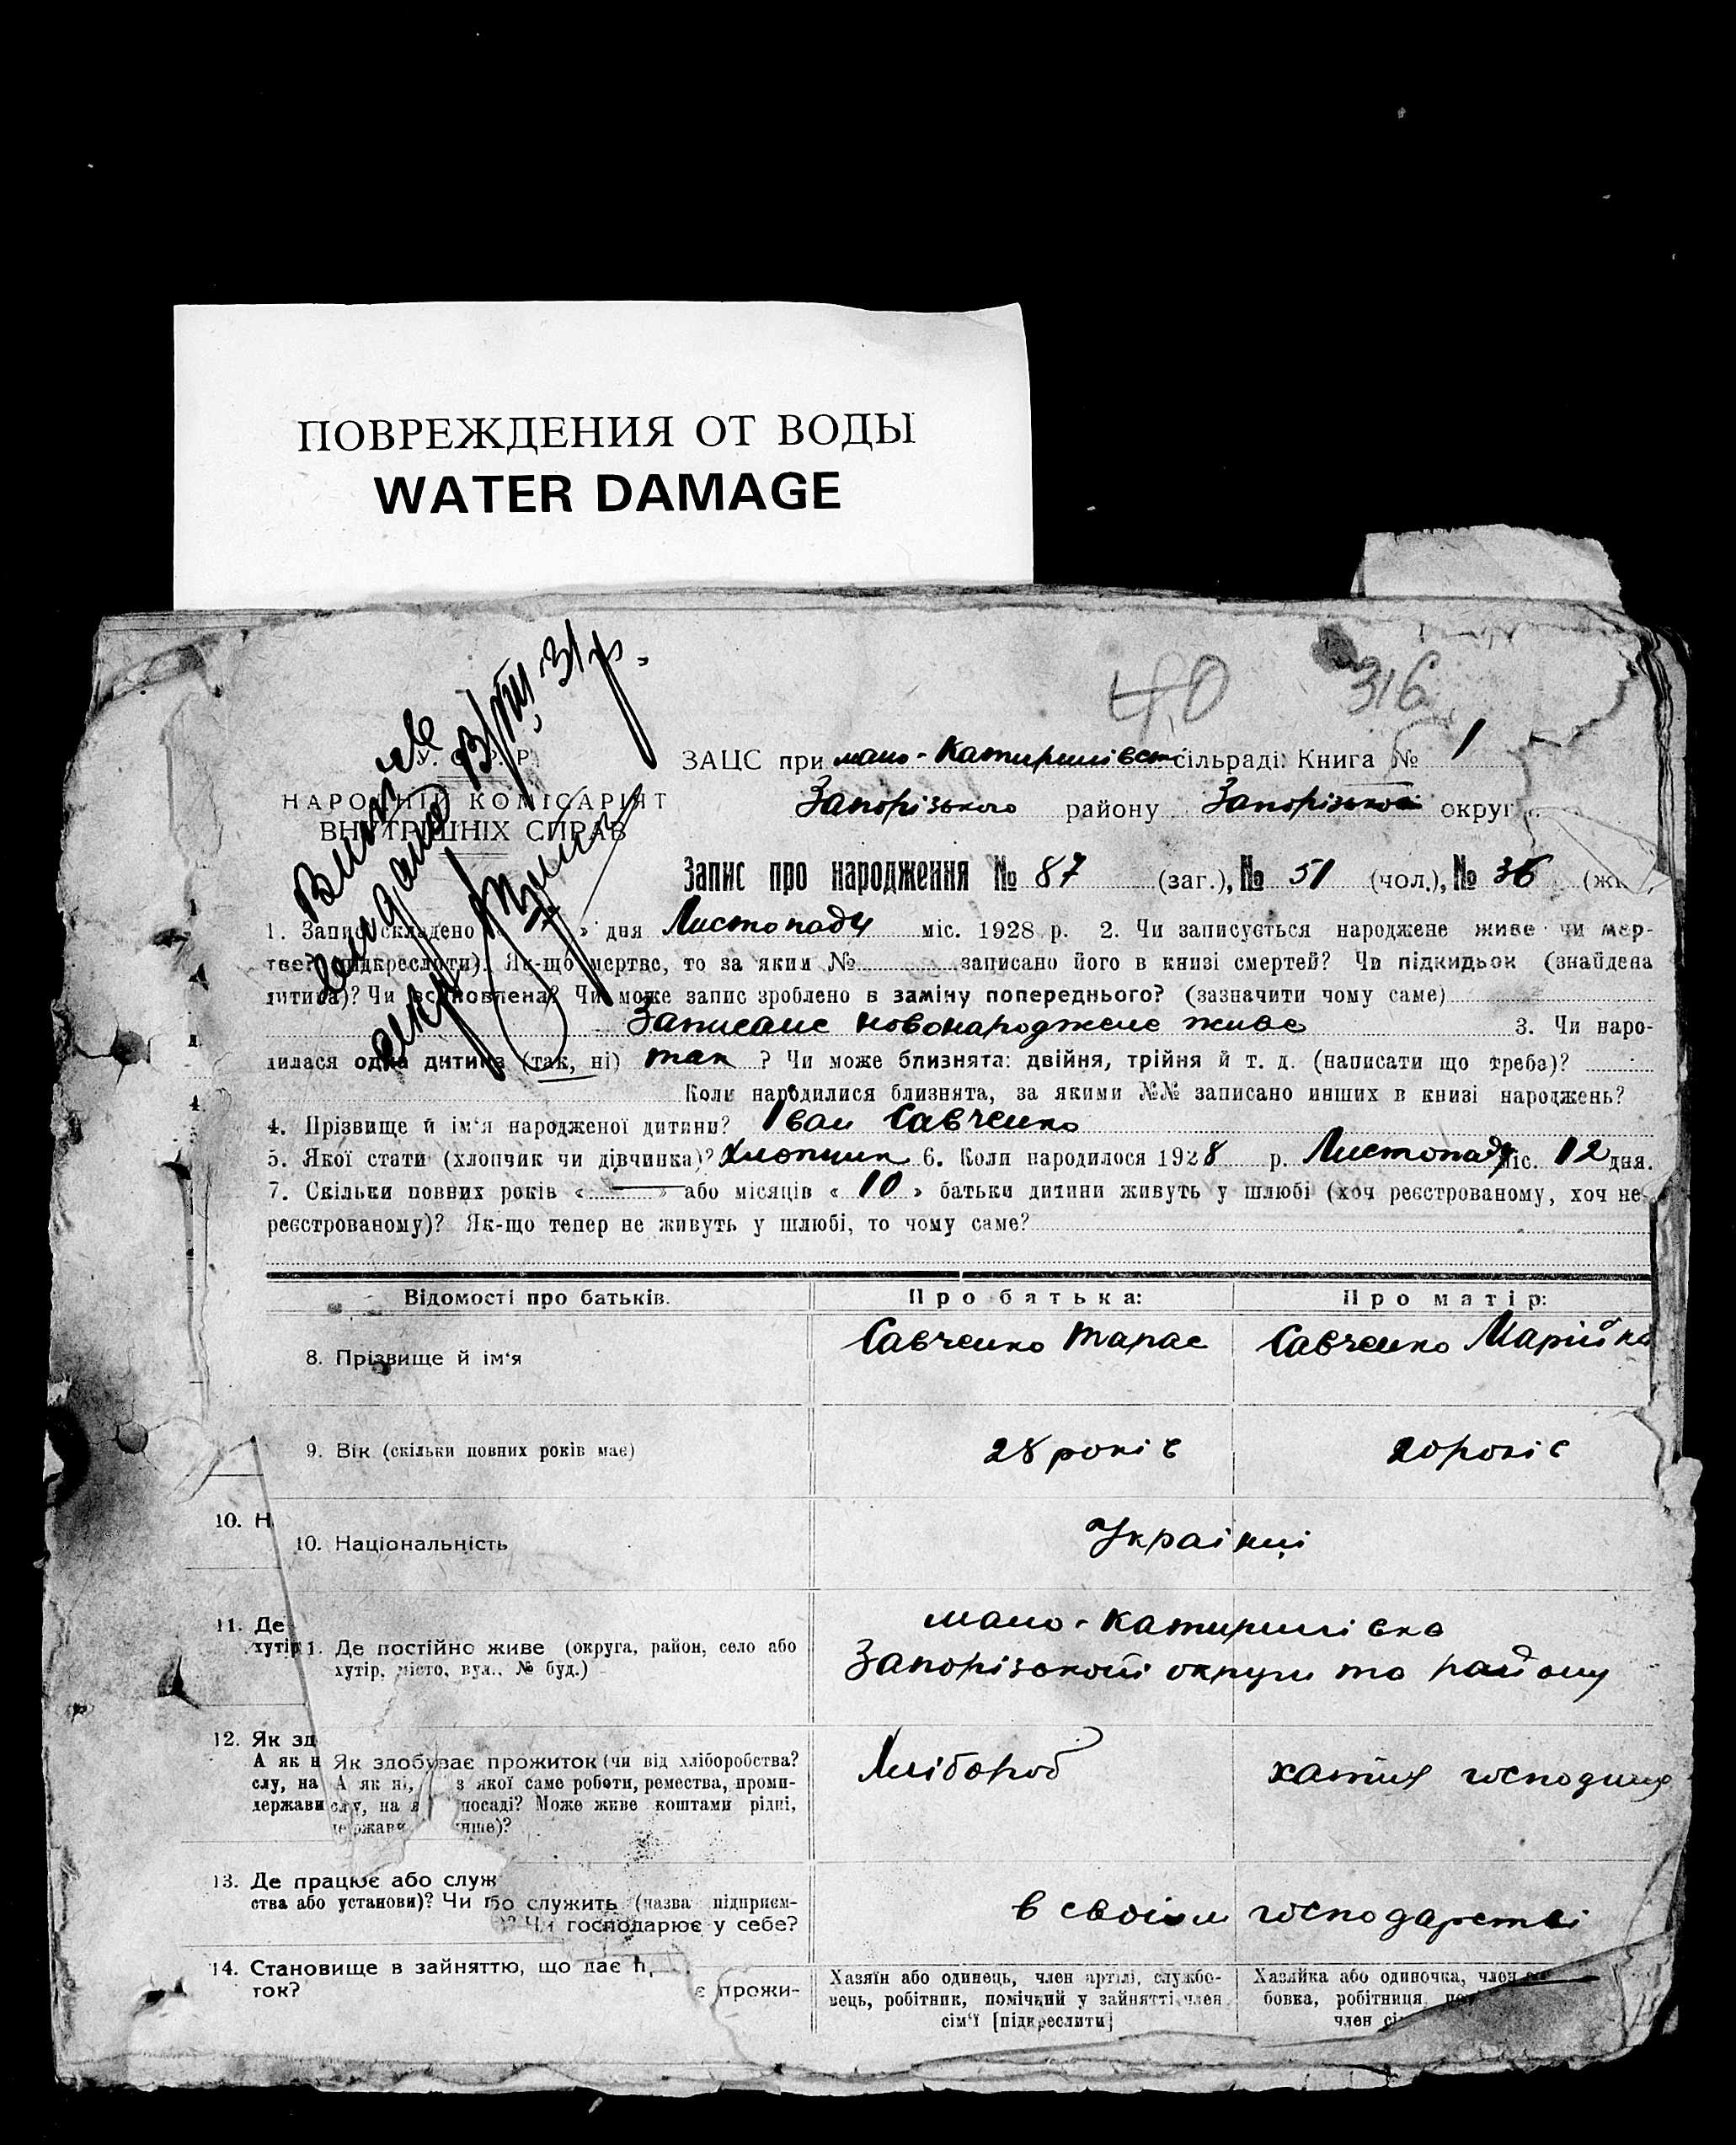 ПОВРЕЖДЕНИЯ ОТ ВОДЫ
WATER DAMAGE
40 316
У. С. Р. Р.
НАРОДНІЙ КОМІСАРІЯТ
ВНУТРІШНІХ СПРАВ
ЗАЦС при мало-Катиринівськ сільраді: Книга № 1
Запорізького району Запорізької округ
Запис про народження № 87 (заг.), № 51 (чол.), № 36
1. Запис складено « » дня Листопаду міс. 1928 р. 2. Чи записується народжене живе чи мер-
тве? (підкреслити). Як-що мертве, то за яким № записано його в книзі смертей? Чи підкидьок (знайдена
дитина)? Чи встановлена? Чи може запис зроблено в заміну попереднього? (зазначити чому саме)
Записане новонароджене живе 3. Чи наро-
дилася одна дитина (так, ні) так ? Чи може близнята: двійня, трійня й т. д. (написати що треба)?
Коли народилися близнята, за якими №№ записано инших в книзі народжень?
4. Прізвище й ім'я народженої дитини? Іван Савченко
5. Якої стати (хлопчик чи дівчинка)? Хлопчик 6. Коли народилося 1928 р. Листопаду міс. 12 дня.
7. Скільки повних років « — » або місяців « 10 » батьки дитини живуть у шлюбі (хоч реєстрованому, хоч не-
реєстрованому)? Як-що тепер не живуть у шлюбі, то чому саме?
Відомості про батьків. Про батька: Про матір:
8. Прізвище й ім'я Савченко Тарас Савченко Марійка
9. Вік (скільки повних років має) 28 років 20 років
10. Н
10. Національність Українці
11. Де
хутір
1. Де постійно живе (округа, район, село або
хутір, місто, вул., № буд.)
мало-Катиринівка
Запорізької округи та району
12. Як зд
А як н
слу, на
держави
Як здобуває прожиток (чи від хліборобства?
А як ні, з якої саме роботи, ремества, проми-
слу, на посаді? Може живе коштами рідні,
держави нше)?
Хлібороб хатня господиня
13. Де працює або служ
ства або установи)? Чи
бо служить (назва підприєм-
)? Чи господарює у себе?
в своїм господарстві
14. Становище в зайняттю, що дає
ток?
є прожи-
Хазяїн або одинець, член артілі, службо-
вець, робітник, помічний у зайнятті член
сім'ї [підкреслити]
Хазяйка або одиночка, член
бовка, робітниця
член сі